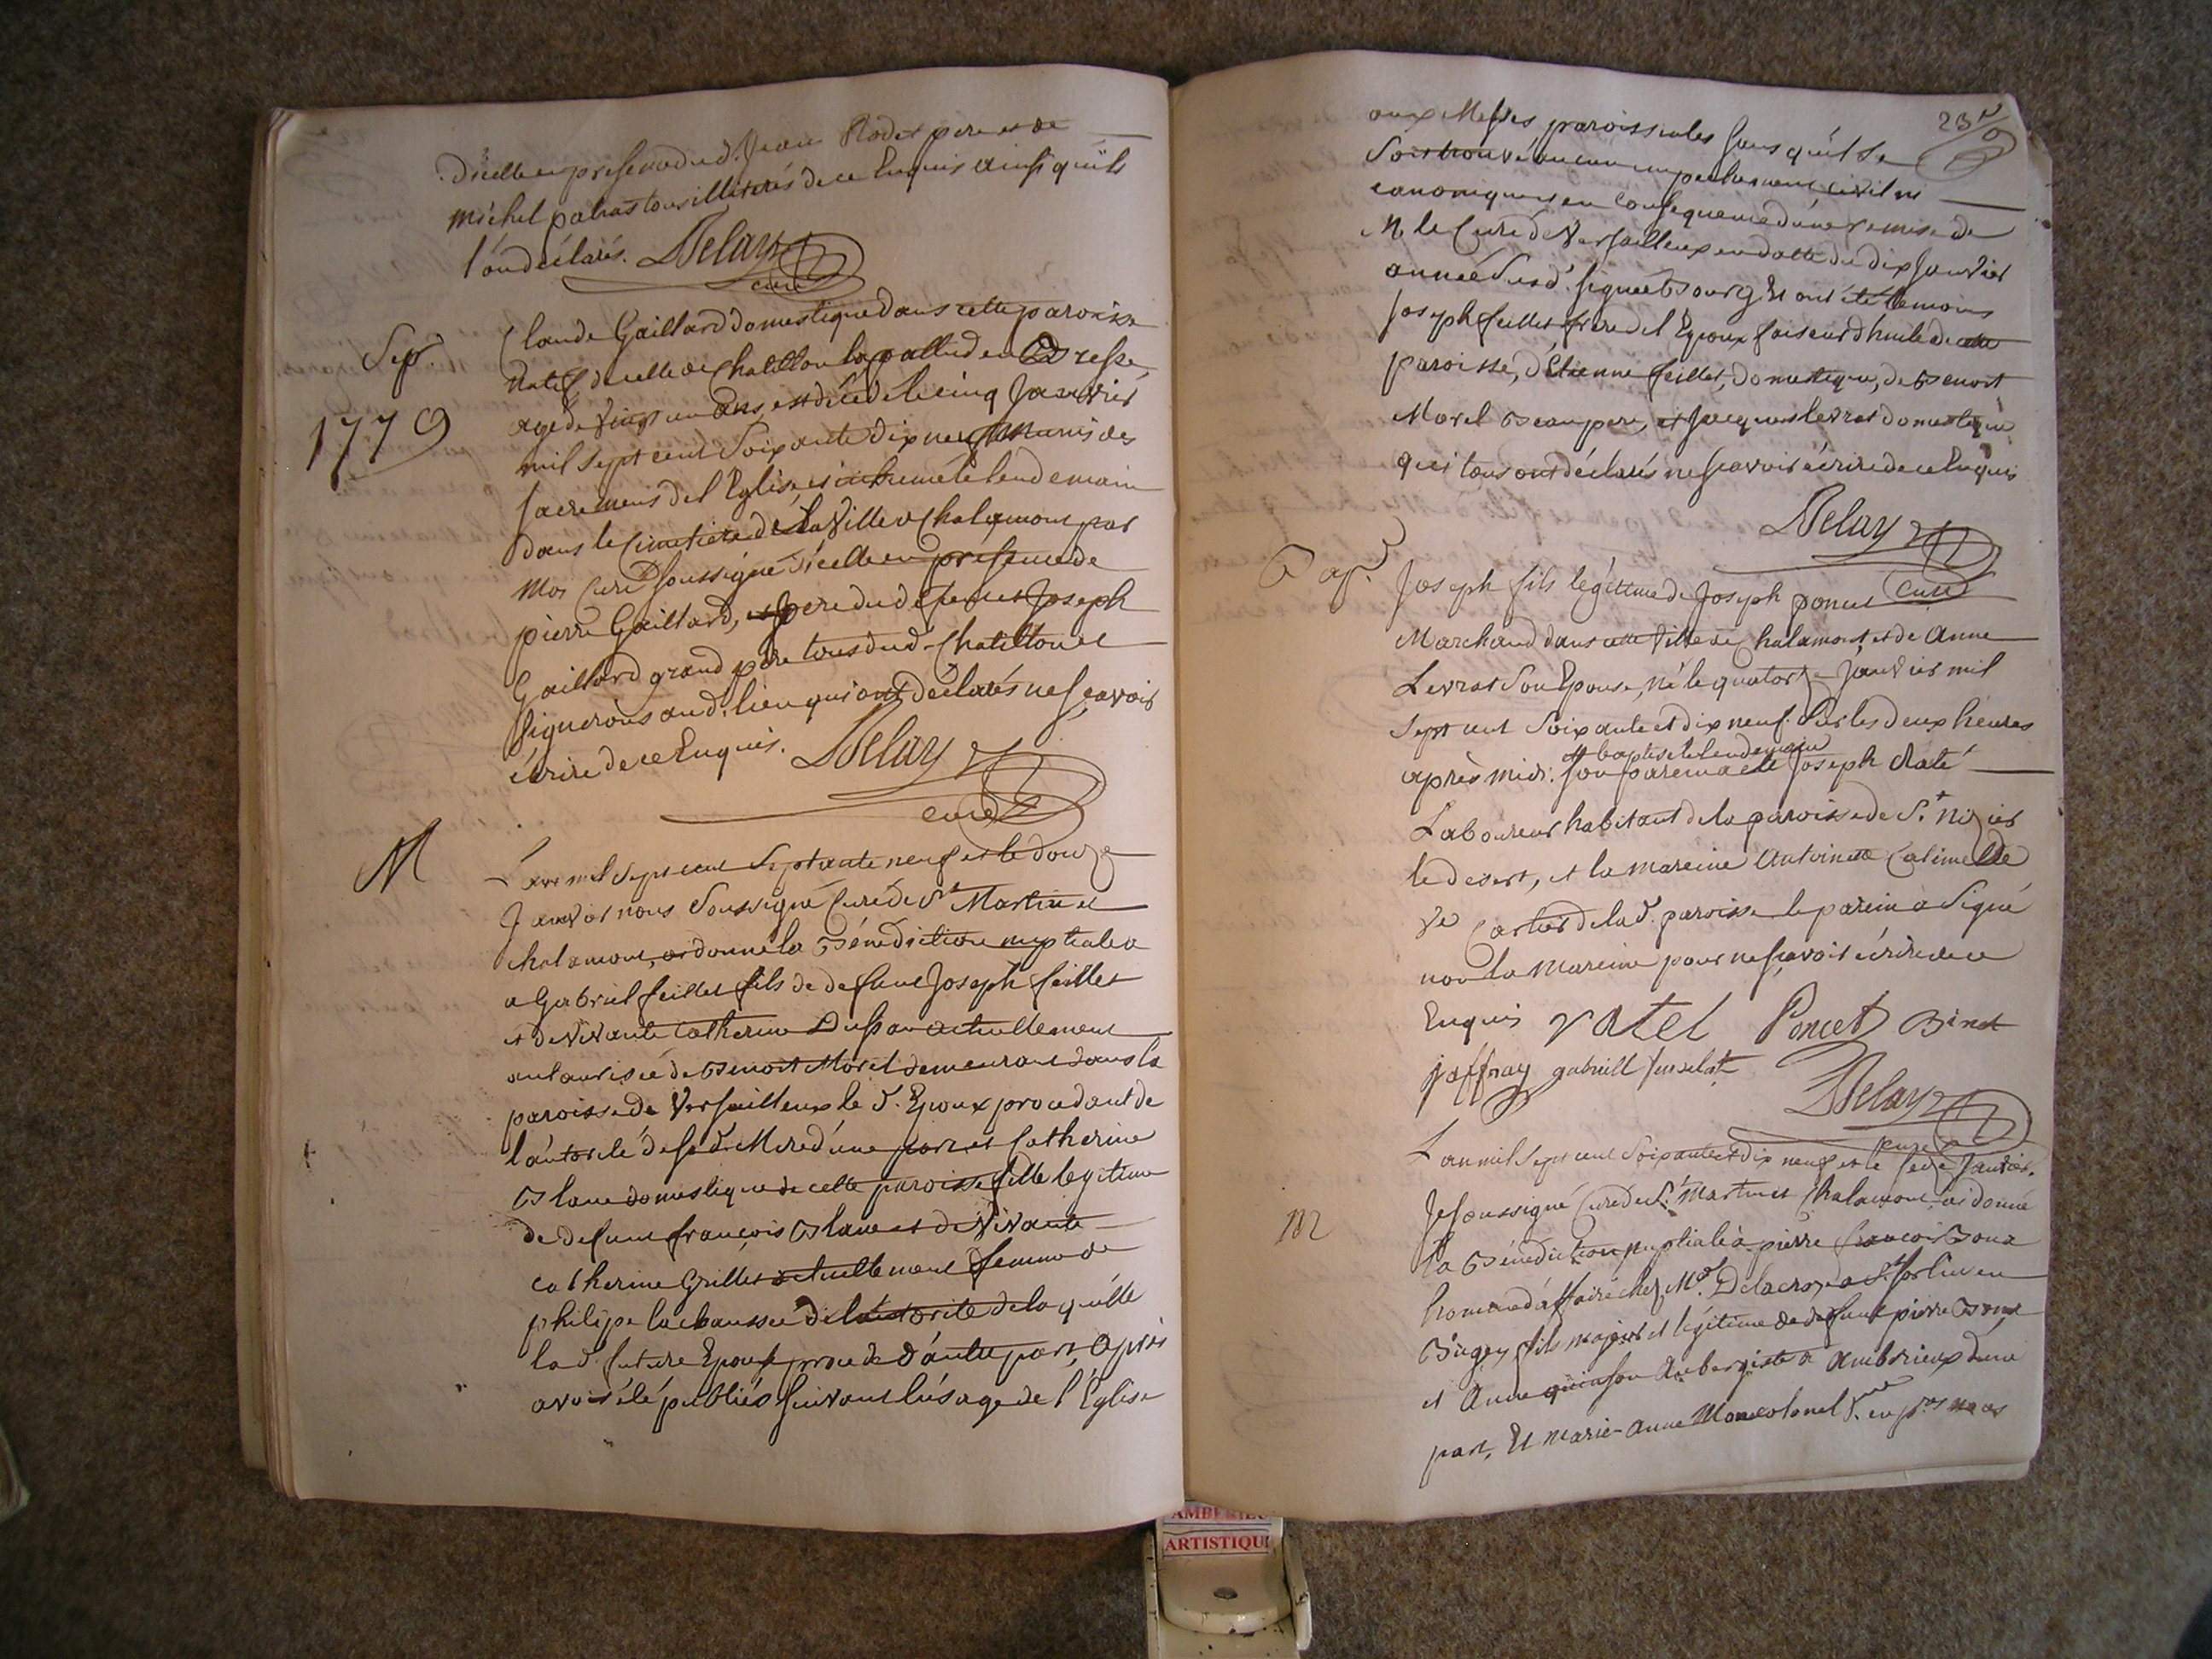 d'icelle en presence dud. Jean Rodet pere et de
Michel palras tous illiterés de ce Enquis ainsi qu'ils
l'ont déclarés. Delay
curé
Sep.
1779
Claude Gaillard domestique dans cette paroisse
natif de celle de Chatillon la pallud en Bresse
agé de vingt un ans, est décédé le cinq Janvier
mil sept cent Soixante dix neuf Munis des
sacremens de l'Eglise, et inhumé le lendemain
dans le Cimetiere de la Ville de Chalamont par
moi Curé soussigné d'icelle en présence de
pierre Gaillard, pere du défunt et Joseph
Gaillard grand pere tous dud. Chatillon et
Vignerons aud. lieu qui ont déclarés ne sçavoir
écrire de ce Enquis. Delay
curé
M
L'an mil sept cent Septante neuf et le douze
Janvier nous Soussigné Curé de St Martin et
chalamont, ai donné la Bénédiction nuptiale a
a Gabriel feillet fils de defunt Joseph feillet
et de vivante Catherine actuellement
autaurisée de Benoit Morel demeurant dans la
paroisse de Versailleux le d. Epoux procedant de
l'autorité de sa d. Mere d'une part et Catherine
Blanc domestique de cette paroisse fille legitime
de defunt françois Blanc et de Vivante
catherine Grillet actuellement femme de
philipe lachaussée de l'autorité de laquelle
la d. future Epouse procede d'autre part, après
avoir été publiés suivant l'usage de l'Eglise
23e
aux Messes paroissiales sans qu'il se
Soit trouvé aucun empechement civil ni
canonique et en consequence d'une remise de
M. le Curé de Versailleux en datte du dix Janvier
année susd. signée Bourg Et ont été témoins
Joseph feillet frere de l'Epoux faiseur d'huile de cette
paroisse, d'Etienne feillet, domestique, de Benoit
Morel Beaupere, et Jacques levrat domestique
qui tous ont déclarés ne scavoir écrire de ce Enquis
Delay
curé
Bap.
Joseph fils légitime de Joseph poncet
Marchand dans cette Ville de Chalamont et de Anne
Levrat Son Epouse, né le quatorze Janvier mil
sept cent Soixante et dix neuf. Sur les deux heures
et baptisé le lendemain
après midi. Son parein a été Joseph
Laboureur habitant de la paroisse de St. nizier
le desert, et la mareine Antoinette
ve Cartier de la d. paroisse le parein a Signé
non la mareine pour ne sçavoir écrire de ce
Enquis Poncet Binet
jaffray gabriell
Delay
curé
M
L'an mil Sept cent Soixante et dix neuf et le seize Janvier.
Je soussigné Curé de St. Martin et Chalamont ai donné
la Bénédiction nuptiale à pierre francois
homme d'affaire chez Mr. Delacroze a St. Sorlin en
Bugey fils majeur et légitime de defunt pierre
et Anne Aubergiste a Ambrieux d'une
part, Et Marie-Anne